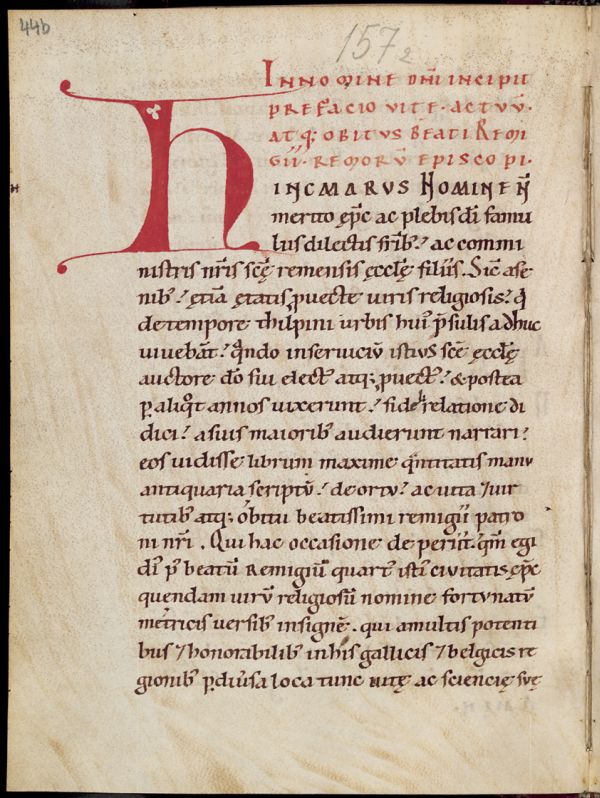 44b
157 2
INNOMINE DN̄I INCIPIT
PREFACIO VITE · ACTVV̄ ·
ATQ; OBITVS BEATI REMI
GII · REMORV̄ EPISCOPI ·
HINCMARVS NOMINE N̄
merito ep̄c ac plebis dī famu
lus dilectis fr̄ib; ac commi
nistris nr̄is scę remensis ęcclę filiis. Sic̄ ase
nib; ętiā ętatis ꝓuectę uiris religiosis; q̇
detempore thilpini urbis hui᾽ p̄sulis adhuc
uiuebāt; q̄ndo inseruiciū istius scę ęcclę
auctore dō sui elect᾽ atq; ꝓuect᾽; & postea
ꝑ aliq̄t annos uixerunt; fideli relatione di
dici; asuis maiorib᾽ audierunt narrari;
eos uidisse librum maxime q̄ntitatis manu
antiquaria scriptū; deortu; ac uita ⁊uir
tutib᾽ atq; obitu beatissimi remigii patro
ni nr̄i. Qui hac occasione deperiit. qm̄ egi
di᾽ p᾽ beatū Remigiū quart᾽ isti᾽ ciuitatis ep̄c
quendam uirū religiosū nomine fortunatū
metricis uersib᾽ insignē. qui amultis potenti
bus ⁊honorabilib᾽ inhis gallicis ⁊belgicis re
gionib᾽ ꝑ diuersa loca tunc uitę ac sciencię suę